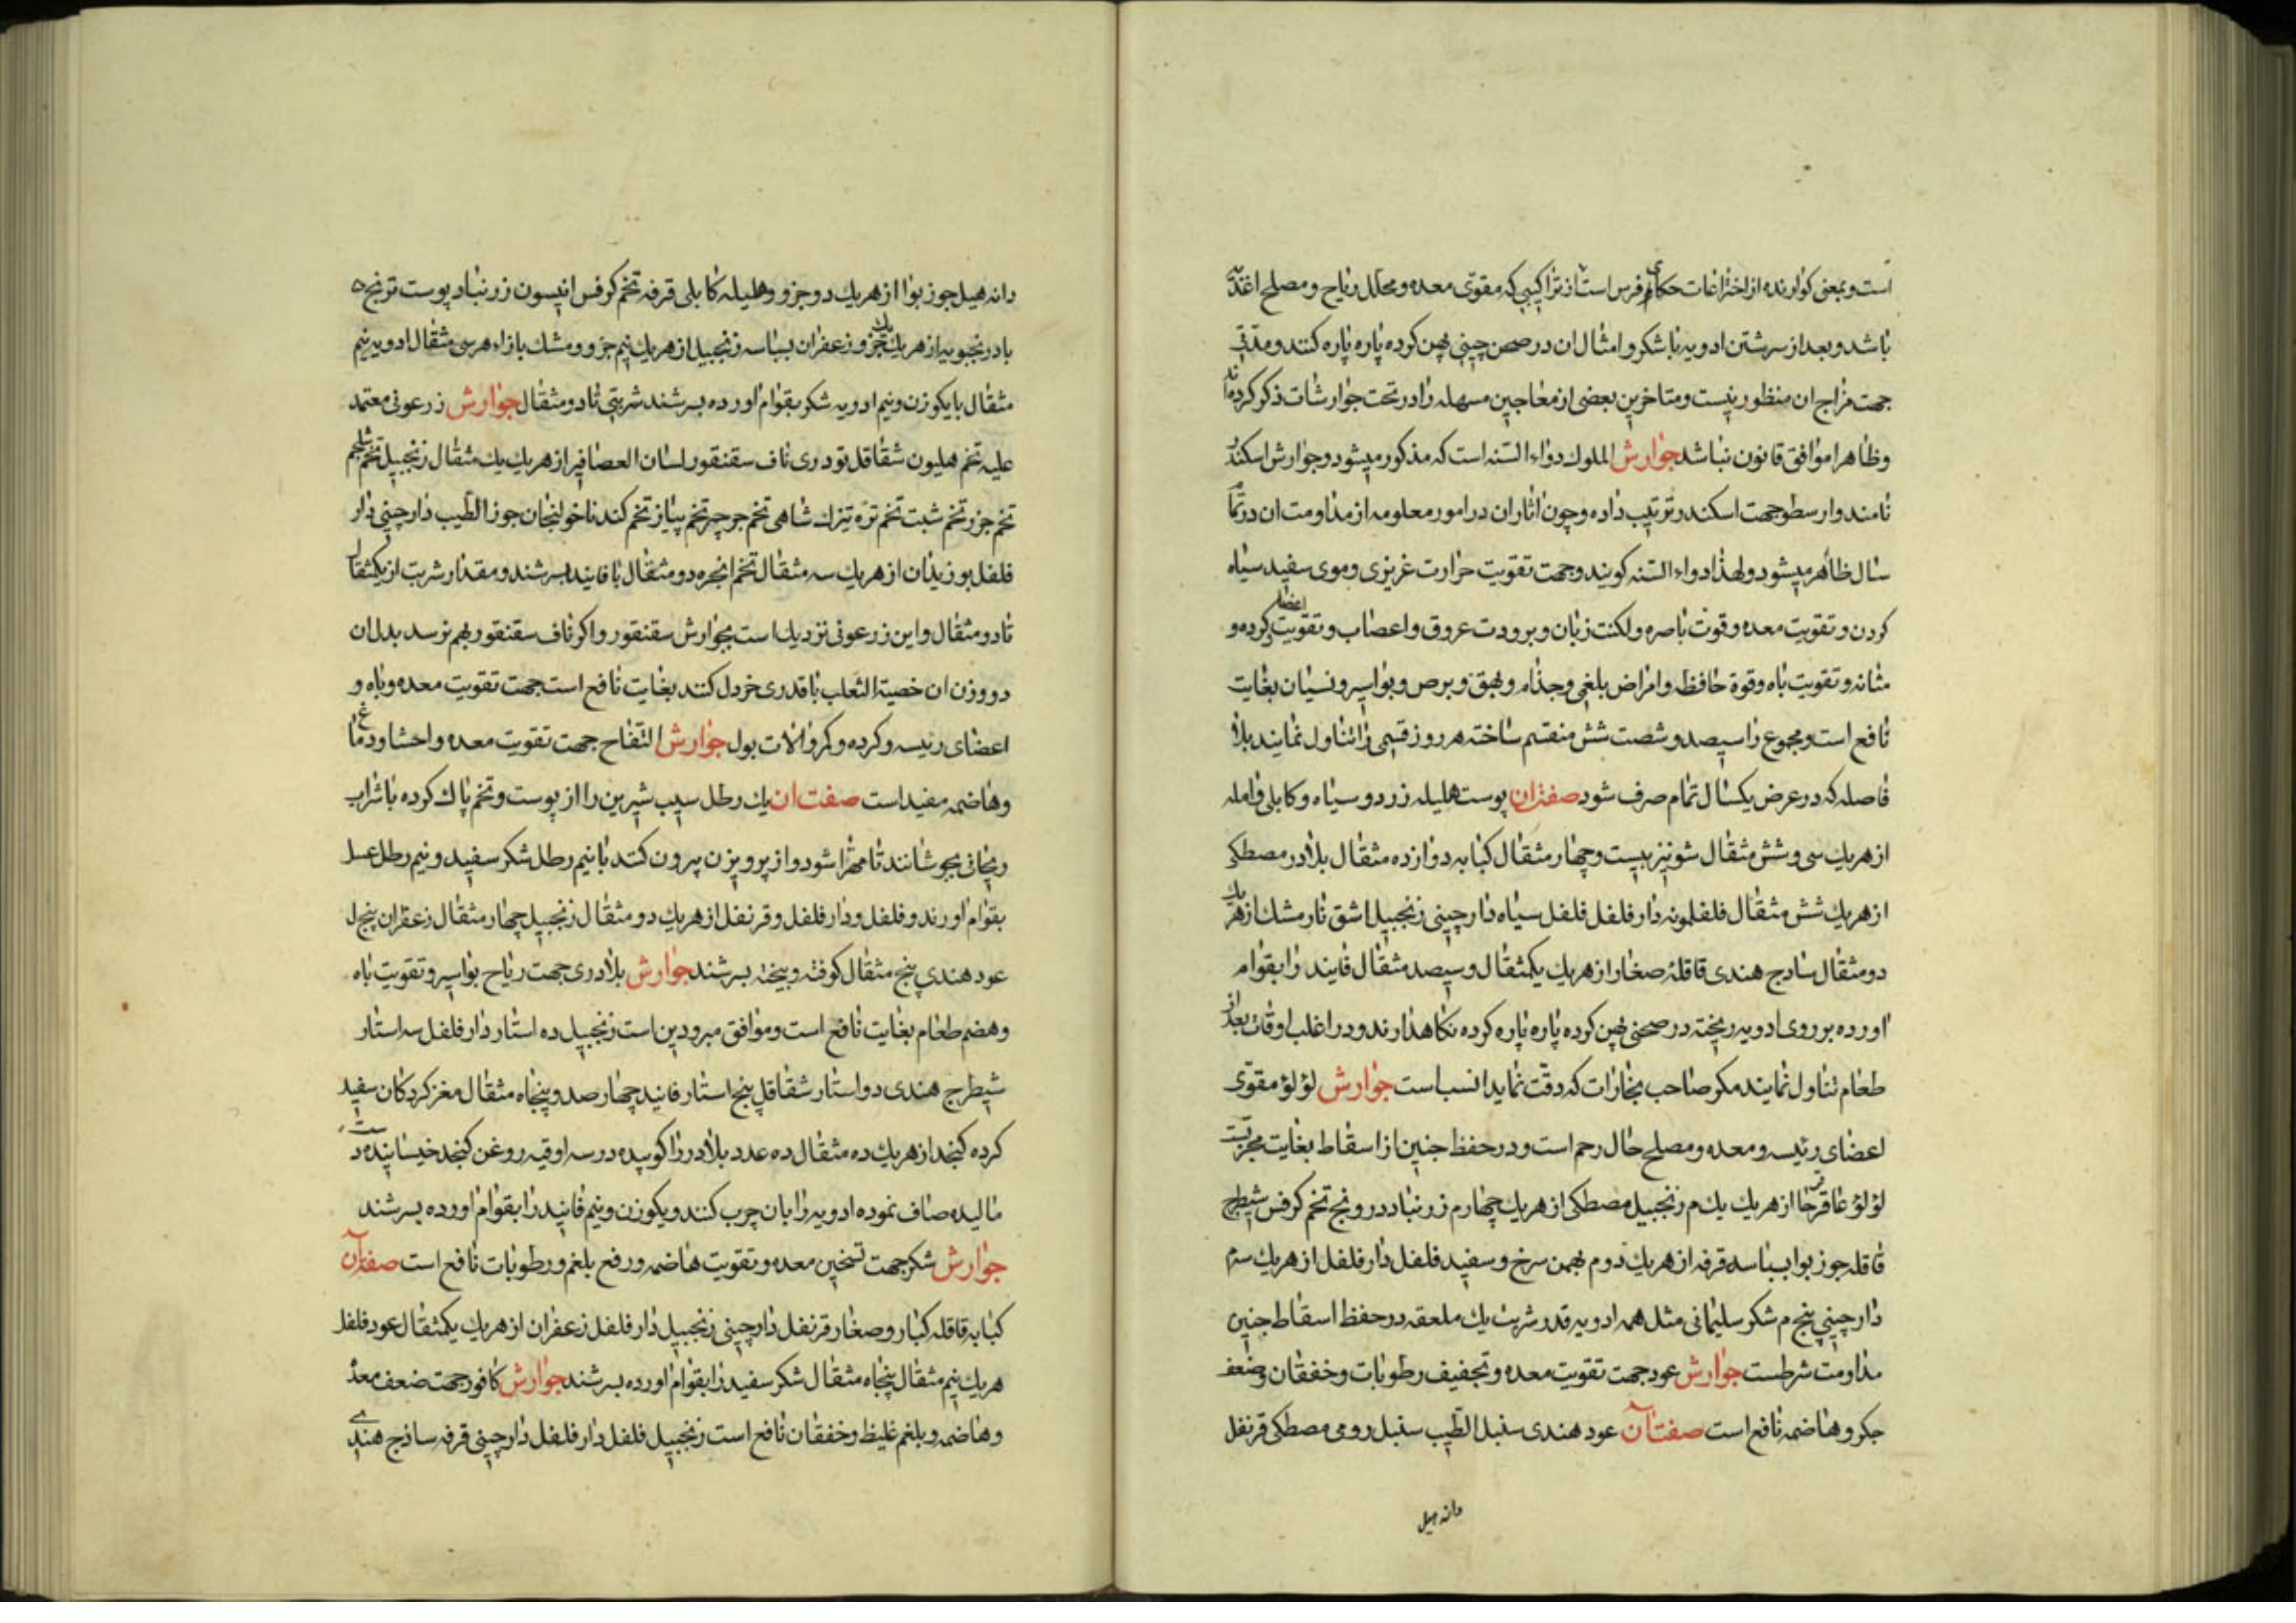 است و بمعنی کوارنده از اختراعات حکمای فرس است از تراکیبی که مقوی معده و محلل ریاح و مصلح اغذیه
باشد و بعد از سرشتن ادویه با شکر و امثال ان در صحن چینی پهن کرده پاره پاره کنند و مدتی
جهت مزاج ان منظور نیست و متاخرین بعضی از معاجین مسهله را در تحت جوارشات ذکر کرده‌اند
و ظاهرا موافق قانون نباشد جوارش الملوک دواء السنه است که مذکور میشود و جوارش اسکندر
نامند و ارسطو جهت اسکندر ترتیب داده و چون اثار ان در امور معلومه از مداومت ان در تمام
سال ظاهر میشود ولهذا دواء السنه کویند و جهت تقویت حرارت غریزی و موی سفید سیاه
کردن و تقویت معده و قوت باصره و لکنت زبان و برودت عروق و اعصاب و تقویت اعضا کرده و
مثانه و تقویت باه و قوة حافظه و امراض بلغمی و جذام و بهق و برص و بواسیر و نسیان بغایت
نافع است و مجموع را سیصد و شصت شش منقسم ساخته هر روز قسمی را تناول نمایند بلا
فاصله که در عرض یکسال تمام صرف شود صفت ان پوست هلیله زرد و سیاه و کابلی و امله
از هریک سی و شش مثقال شونیز بیست و چهار مثقال کبابه دوازده مثقال بلادر مصطکی
از هریک شش مثقال فلفلمونه دار فلفل فلفل سیاه دارچینی زنجبیل اشق نار مشک از هریک
دو مثقال سادج هندی قاقلهٔ صغار از هریک یکمثقال و سیصد مثقال فانید را بقوام
اورده بر روی ادویه ریخته در صحنی پهن کرده پاره پاره کرده نکاهدارند و در اغلب اوقات بعد از
طعام تناول نمایند مکر صاحب بخارات که دقت نماید انسب است جوارش لؤلؤ مقوی
اعضای رئیسه و معده و مصلح حال رحم است و در حفظ جنین از اسقاط بغایت مجربست
لؤلؤ عاقرقرحا از هریک یک م زنجبیل مصطکی از هریک چهار م زرنباد درونج تخم کرفس شیطرج
قاقله جوز بوا بسباسه قرفه از هریک دو م بهمن سرخ و سفید فلفل دار فلفل از هریک سه م
دارچینی پنج م شکر سلیمانی مثل همه ادویه قدر شربت یک ملعقه در حفظ اسقاط جنین
مداومت شرطست جوارش عود جهت تقویت معده و تجفیف رطوبات و خفقان و ضعف
جکر و هاضمه نافع است صفت آن عود هندی سنبل الطیب سنبل رومی مصطکی قرنفل
دانه هیل
دانه هیل جوز بوا از هریک دو جزو و هلیله کابلی قرفه تخم کرفس انیسون زرنباد پوست ترنج
بادرنجبویه از هریک یک جزو زعفران بسباسه زنجبیل از هریک نیم جزو و مشک بازاء هر سی مثقال ادویه نیم
مثقال با یکوزن و نیم ادویه شکر بقوام اورده بسرشند شربتی تا دو مثقال جوارش زرعونی معتمد
علیه تخم هلیون شقاقل تودری ناف سقنقور لسان العصافیر از هریک یک مثقال زنجبیل تخم شلجم
تخم جزر و تخم شبت تخم تره تیزک شاهی تخم جرجیر تخم پیاز تخم کندنا خولنجان جوز الطیب دارچینی دار
فلفل بوزیدان از هریک سه مثقال تخم انجره دو مثقال با فانید بسرشند و مقدار شربت از یکمثقال
تا دو مثقال و این زرعونی نزدیک است بجوارش سقنقور و اکر ناف سقنقور بهم نرسد بدل ان
دو وزن ان خصیة الثعلب با قدری خردل کنند بغایت نافع است جهت تقویت معده و باه و
اعضای رئیسه و کرده و کمر و الات بول جوارش التفاح جهت تقویت معده و احشا و دماغ
و هاضمه مفید است صفت ان یک رطل سیب شیرین را از پوست و تخم پاک کرده با شراب
ریحانی بجوشانند تا مهرا شود و از پرویزن بیرون کنند با نیم رطل شکر سفید و نیم رطل عسل
بقوام اورند و فلفل و دار فلفل و قرنفل از هریک دو مثقال زنجبیل چهار مثقال زعفران پنج
عود هندی پنج مثقال کوفته و بیخته بسرشند جوارش بلادری جهت ریاح بواسیر و تقویت باه
و هضم طعام بغایت نافع است و موافق مبرودین است زنجبیل ده استار دار فلفل سه استار
شیطرج هندی دو استار شقاقل پنج استار فانید چهار صد و پنجاه مثقال مغز کردکان سفید
کرده کنجد از هریک ده مثقال ده عدد بلادر را کوبیده در سه اوقیه روغن کنجد خیسانیده
مالیده صاف نموده ادویه را بان چرب کنند و یکوزن و نیم فانید را بقوام اورده بسرشند
جوارش شکر جهت تسخین معده و تقویت هاضمه و رفع بلغم و رطوبات نافع است صفت آن
کبابه قاقله کبار و صغار قرنفل دارچینی زنجبیل دار فلفل زعفران از هریک یکمثقال عود فلفل
هریک نیم مثقال پنجاه مثقال شکر سفید را بقوام اورده بسرشند جوارش کافور جهت ضعف معده
و هاضمه و بلغم غلیظ و خفقان نافع است زنجبیل فلفل دار فلفل دارچینی قرفه ساذج هندی